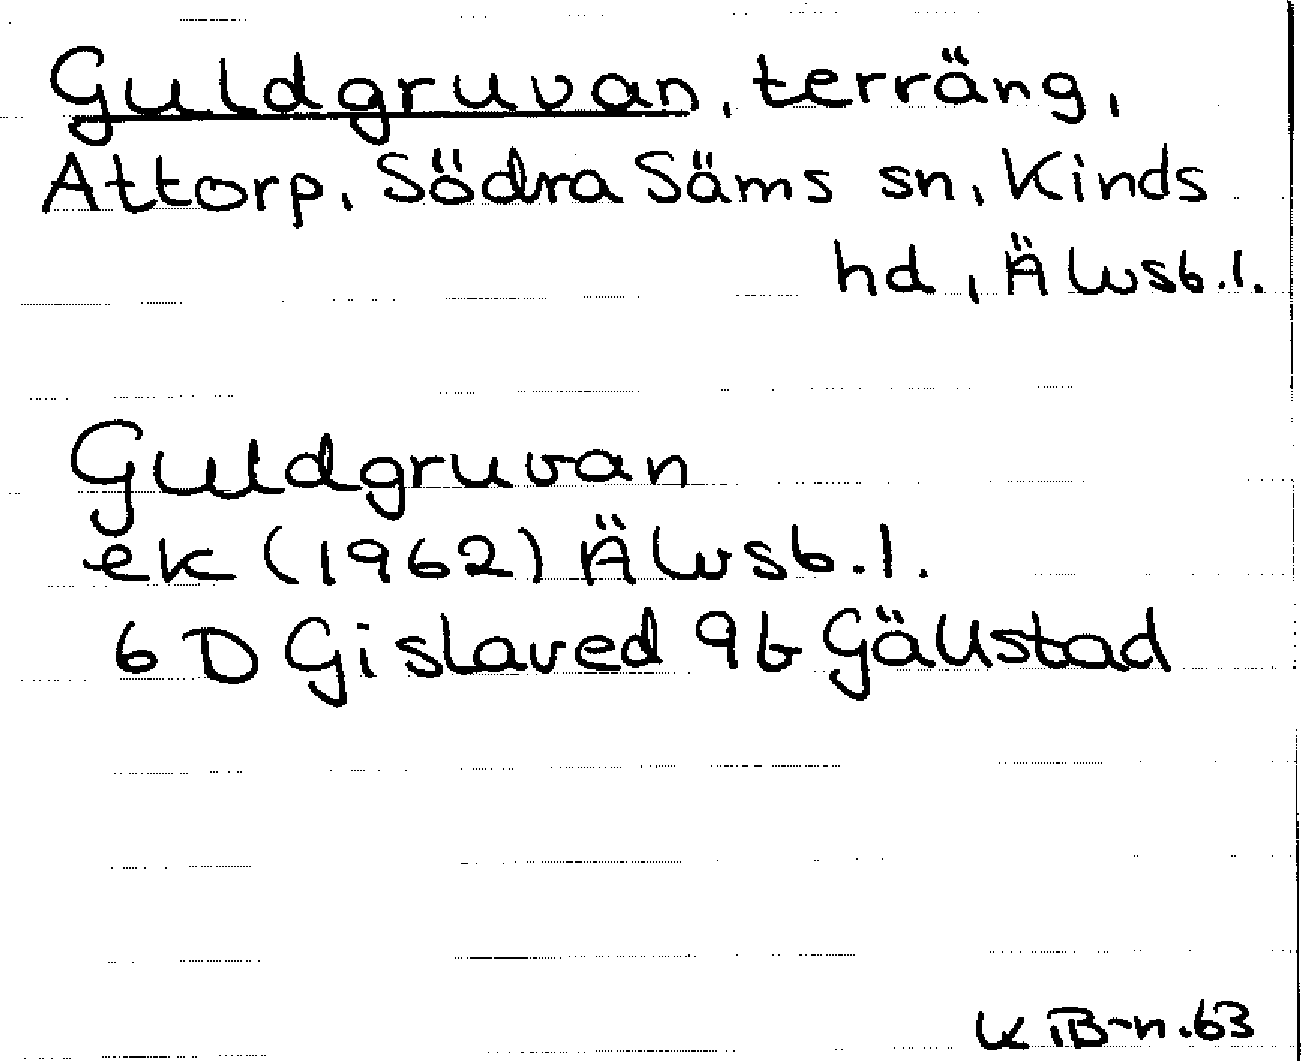 Guldgruvan, terräng,
Attorp, Södra Säms sn, Kinds
hd, Älvsb.l.
Guldgruvan
ek (1962) Älvsb.l.
6D Gislaved 9b Gällstad
K iB-n.63